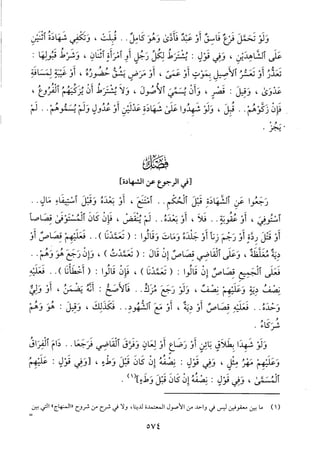 وَلَوْ تَحَمَّلَ فَرْعٌ فَاسِقٌ أَوْ عَبْدٌ فَأَدَّىٰ وَهُوَ كَامِلٌ .. قُبِلَتْ ، وَتَكْفِي شَهَادَةُ ٱثْنَيْنِ
عَلَى ٱلشَّاهِدَيْنِ ، وَفِي قَوْلٍ : يُشْتَرَطُ لِكُلِّ رَجُلٍ أَوِ ٱمْرَأَةٍ ٱثْنَانِ ، وَشَرْطُ قَبُولِهَا :
تَعَذُّرُ أَوْ تَعَسُّرُ ٱلأَصِيلِ بِمَوْتٍ أَوْ عَمَىً ، أَوْ مَرَضٍ يَشُقُّ حُضُورُهُ ، أَوْ غَيْبَةٍ لِمَسَافَةِ
عَدْوَىٰ ، وَقِيلَ : قَصْرٍ ، وَأَنْ يُسَمِّيَ ٱلأُصُولَ ، وَلاَ يُشْتَرَطُ أَنْ يُزَكِّيَهُمُ ٱلْفُرُوعُ ،
فَإِنْ زَكَّوْهُمْ .. قُبِلَ ، وَلَوْ شَهِدُوا عَلَىٰ شَهَادَةِ عَدْلَيْنِ أَوْ عُدُولٍ وَلَمْ يُسَمُّوهُمْ .. لَمْ
يَجُزْ .
فَصْلٌ
[في الرجوع عن الشهادة]
رَجَعُوا عَنِ ٱلشَّهَادَةِ قَبْلَ ٱلْحُكْمِ .. ٱمْتَنَعَ ، أَوْ بَعْدَهُ وَقَبْلَ ٱسْتِيفَاءِ مَالٍ ..
ٱسْتُوفِيَ ، أَوْ عُقُوبَةٍ .. فَلاَ ، أَوْ بَعْدَهُ .. لَمْ يُنْقَضْ ، فَإِنْ كَانَ ٱلْمُسْتَوْفَىٰ قِصَاصاً
أَوْ قَتْلَ رِدَّةٍ أَوْ رَجْمَ زِناً أَوْ جَلْدَهُ وَمَاتَ وَقَالُوا : ( تَعَمَّدْنَا ) .. فَعَلَيْهِمْ قِصَاصٌ أَوْ
دِيَةٌ مُغَلَّظَةٌ ، وَعَلَى ٱلْقَاضِي قِصَاصٌ إِنْ قَالَ : ( تَعَمَّدْتُ ) ، وَإِنْ رَجَعَ هُوَ وَهُمْ ..
فَعَلَى ٱلْجَمِيعِ قِصَاصٌ إِنْ قَالُوا : ( تَعَمَّدْنَا ) ، فَإِنْ قَالُوا : ( أَخْطَأْنَا ) .. فَعَلَيْهِ
نِصْفُ دِيَةٍ وَعَلَيْهِمْ نِصْفٌ ، وَلَوْ رَجَعَ مُزَكٍّ .. فَٱلأَصَحُّ : أَنَّهُ يَضْمَنُ ، أَوْ وَلِيٌّ
وَحْدَهُ .. فَعَلَيْهِ قِصَاصٌ أَوْ دِيَةٌ ، أَوْ مَعَ ٱلشُّهُودِ .. فَكَذَلِكَ ، وَقِيلَ : هُوَ وَهُمْ
شُرَكَاءُ .
وَلَوْ شَهِدَا بِطَلاَقٍ بَائِنٍ أَوْ رَضَاعٍ أَوْ لِعَانٍ وَفَرَّقَ ٱلْقَاضِي فَرَجَعَا .. دَامَ ٱلْفِرَاقُ
وَعَلَيْهِمْ مَهْرُ مِثْلٍ ، وَفِي قَوْلٍ : نِصْفُهُ إِنْ كَانَ قَبْلَ وَطْءٍ ، [وَفِي قَوْلٍ : عَلَيْهِمُ
ٱلْمُسَمَّىٰ ، وَفِي قَوْلٍ : نِصْفُهُ إِنْ كَانَ قَبْلَ وَطْءٍ](١) .
(١) ما بين معقوفين ليس في واحد من الأصول المعتمدة لدينا ، ولا في شرح من شروح «المنهاج» التي بين
٥٧٤